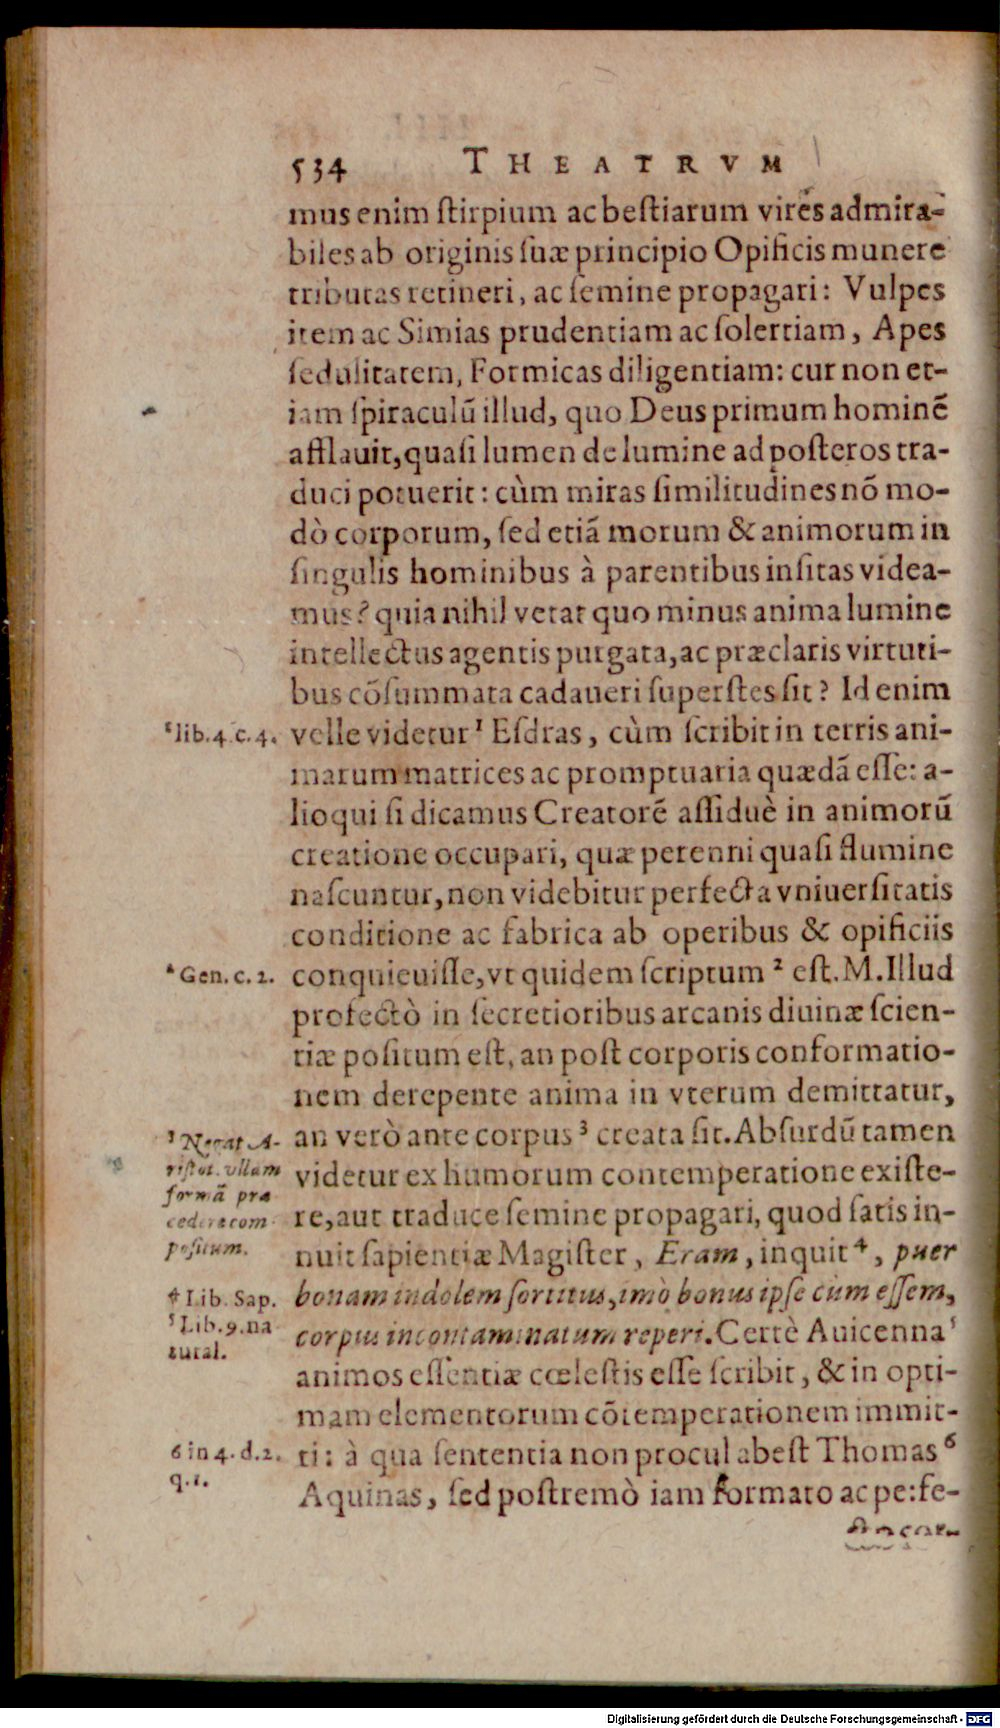 534 THEATRVM
mus enim ſtirpium ac beſtiarum vires admira-
biles ab originis ſuæ principio Opificis munere
tributas retineri, ac ſemine propagari: Vulpes
item ac Simias prudentiam ac ſolertiam, Apes
ſedulitatem, Formicas diligentiam: cur non et-
iam ſpiraculū illud, quo Deus primum hominē
afflauit, quaſi lumen de lumine ad poſteros tra-
duci potuerit: cùm miras ſimilitudines nō mo-
dò corporum, ſed etiā morum & animorum in
ſingulis hominibus à parentibus inſitas videa-
mus? quia nihil vetat quo minus anima lumine
intellectus agentis purgata, ac præclaris virtuti-
bus cōſummata cadaueri ſuperſtes ſit? Id enim
¹lib. 4. c. 4. velle videtur¹ Eſdras, cùm ſcribit in terris ani-
marum matrices ac promptuaria quædā eſſe: a-
lioqui ſi dicamus Creatorē aſſiduè in animorū
creatione occupari, quæ perenni quaſi flumine
naſcuntur, non videbitur perfecta vniuerſitatis
conditione ac fabrica ab operibus & opificiis
²Gen. c. 2. conquieuiſſe, vt quidem ſcriptum² eſt. M. Illud
profectò in ſecretioribus arcanis diuinæ ſcien-
tiæ poſitum eſt, an poſt corporis conformatio-
nem derepente anima in vterum demittatur,
³Negat A- an verò ante corpus³ creata ſit. Abſurdū tamen
riſtot. vllam videtur ex humorum contemperatione exiſte-
formā præ
cedere com re, aut traduce ſemine propagari, quod ſatis in-
poſitum. nuit ſapientiæ Magiſter, Eram, inquit⁴, puer
⁴Lib. Sap. bonam indolem ſortitus, imò bonus ipſe cùm eſſem,
⁵Lib. 9. na corpus incontaminatum reperi. Certè Auicenna⁵
tural. animos eſſentiæ cœleſtis eſſe ſcribit, & in opti-
mam elementorum cōtemperationem immit-
6 in 4. d. 2. ti: à qua ſententia non procul abeſt Thomas⁶
q. 1. Aquinas, ſed poſtremò iam formato ac perfe-
Digitalisierung gefördert durch die Deutsche Forschungsgemeinschaft - DFG